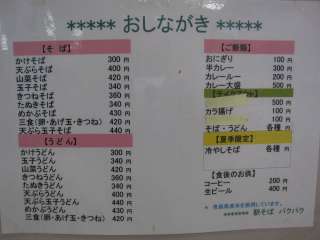 ***** おしながき *****
【そば】
かけそば 300 円
天ぷらそば 420 円
山菜そば 420 円
玉子そば 340 円
きつねそば 360 円
たぬきそば 340 円
めかぶそば 430 円
三食(卵・あげ玉・きつね) 420 円
天ぷら玉子そば 440 円
【うどん】
かけうどん 300 円
玉子うどん 340 円
山菜うどん 420 円
きつねうどん 360 円
たぬきうどん 340 円
天ぷらうどん 420 円
天ぷら玉子うどん 440 円
めかぶうどん 430 円
三食(卵・あげ玉・きつね) 420 円
【ご飯類】
おにぎり 100 円
半カレー 300 円
カレールー 200 円
カレー大盛 500 円
500 円
カラ揚げ 100 円
100 円
そば・うどん 各種 円
【夏季限定】
冷やしそば 各種 円
【食後のお供】
コーヒー 200 円
生ビール 400 円
******** 駅そば パクパク